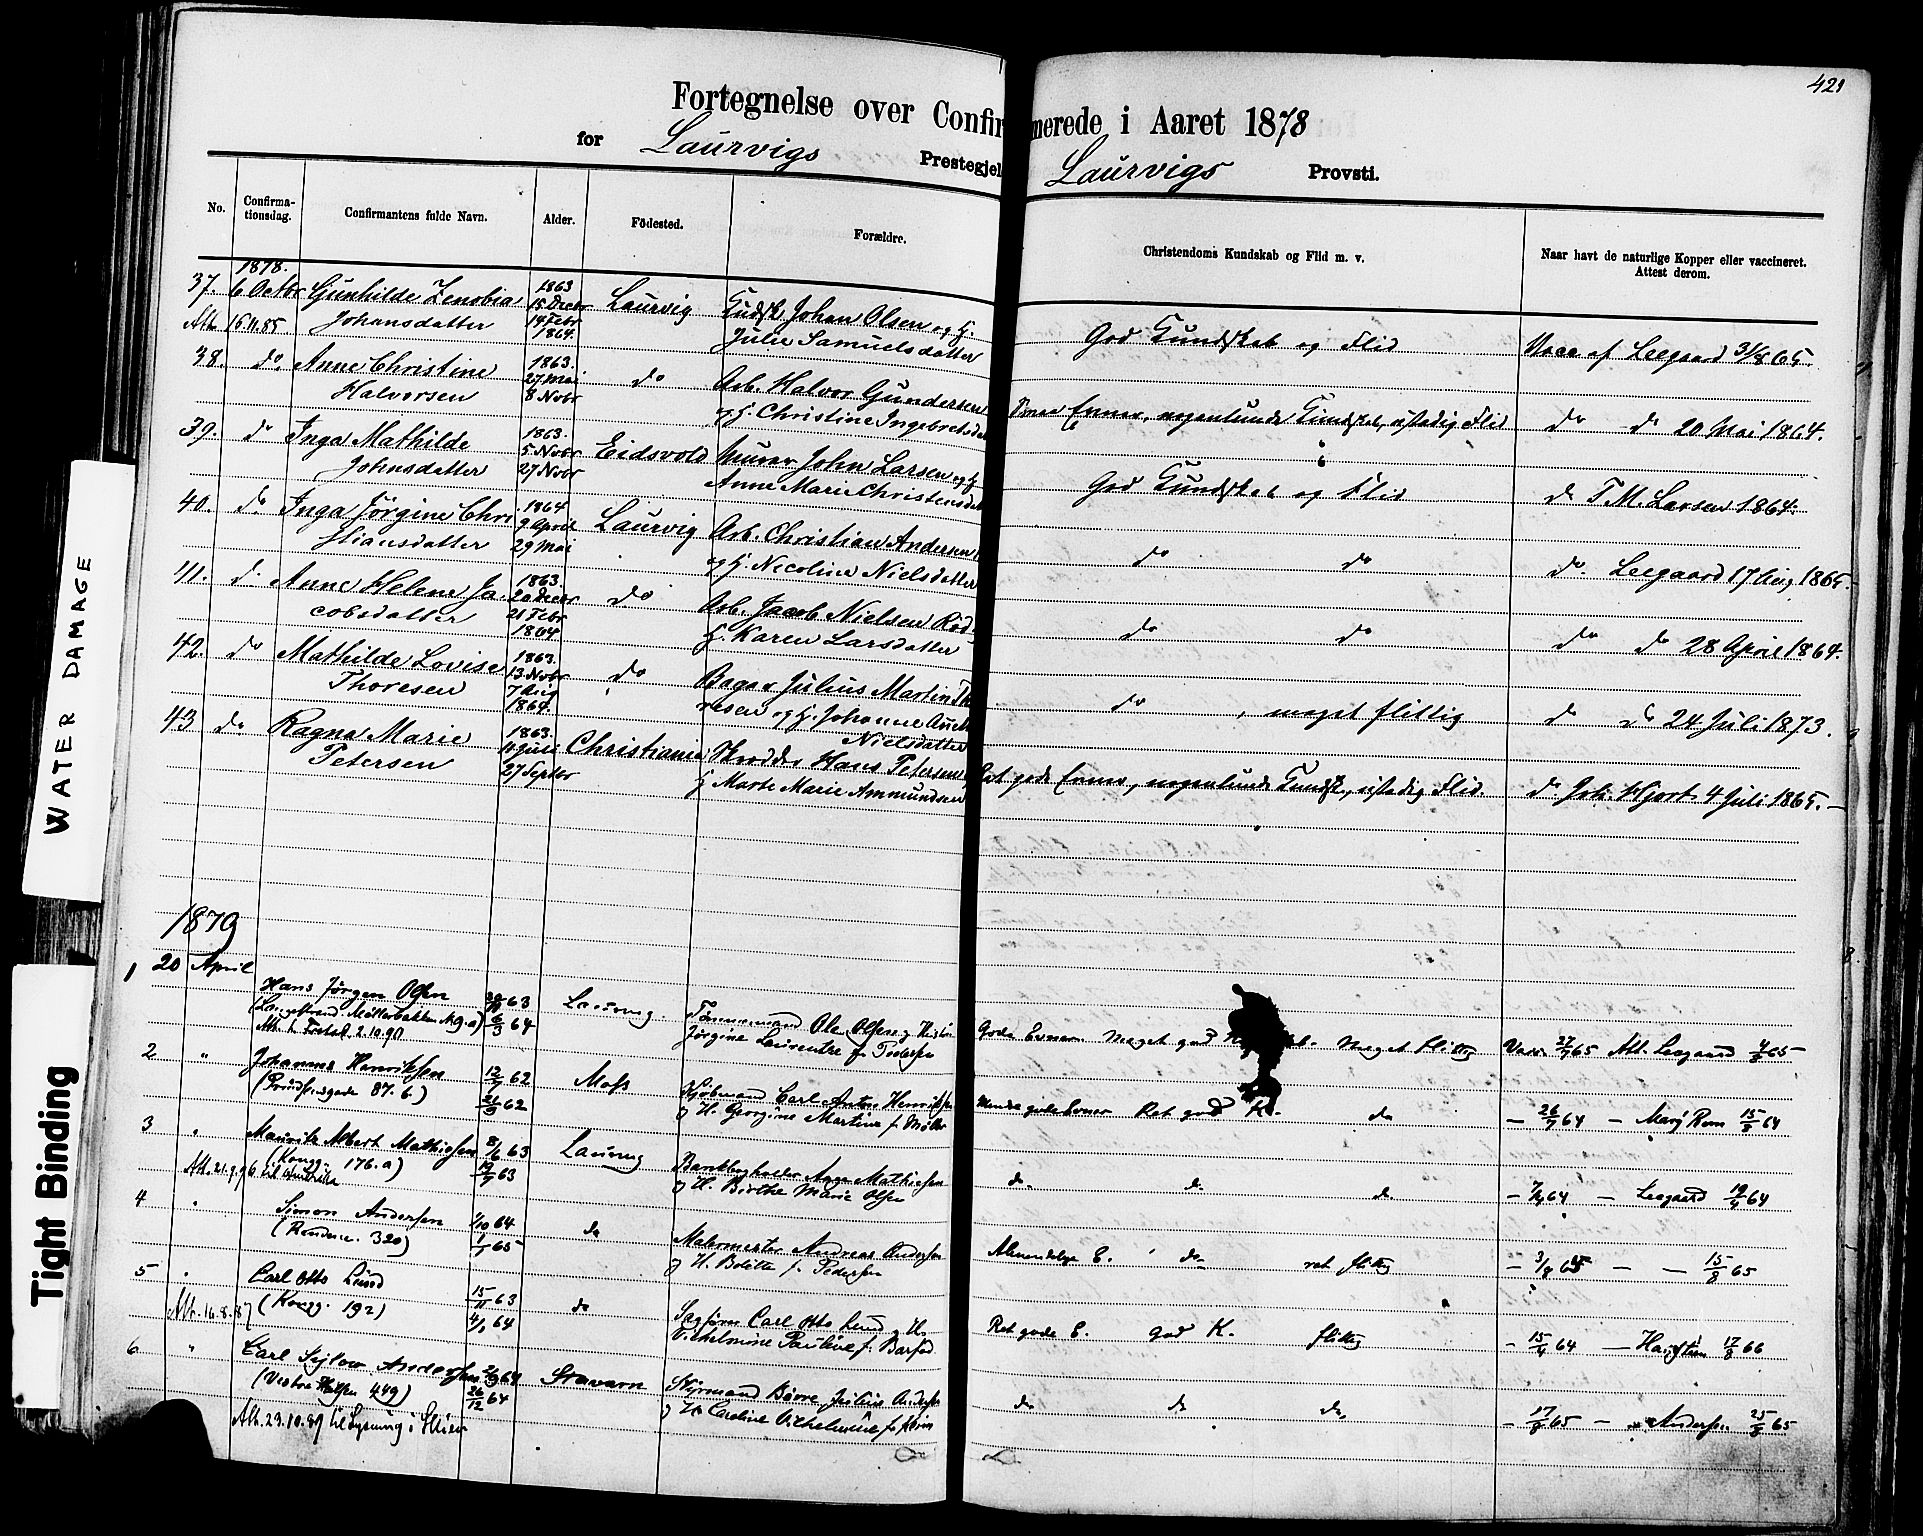 421
Fortegnelse over Confirmerede i Aaret 1878
for Laurvigs Prestegjel Laurvigs Provsti.
No. Confirma-tionsdag. Confirmantens fulde Navn. Alder. Födested. Forældre. Christendoms Kundskab og Flid m. v. Naar havt de naturlige Kopper eller vaccineret. Attest derom.
1878.
37. 6 Octbr Gunhilde Zenobia 1863 15 Decbr Laurvig Johan Olsen og H. God Kundskab og Flid Vacc af Leegaard 31/8 65.
Att. 16.11.85 Johansdatter 14 Febr 1864. Julie Samuelsdatter
38. do Anne Christine 1863. 27 Mai do Arb. Halvor Gundersen Evner, nogenlunde Kundskab, ustadig Flid do do 20 Mai 1864.
Halvorsen 8 Novbr og H. Christine Ingebretsd
39. do Inga Mathilde 1863. 5 Novbr Eidsvold Murer John Larsen og H. God Kundskab og Flid do T. M. Larsen 1864.
Johnsdatter 27 Novbr Anne Marie Christensdat
40. do Inga Jørgine Chri 1864 9 April Laurvig Arb. Christian Andersen do do do Leegaard 17 Aug 1865.
stiansdatter 29 Mai og H. Nicoline Nielsdatter
41. do Anne Helene Ja 1863. 20 Decbr do Arb. Jacob Nielsen Röd do do do do 28 April 1864.
cobsdatter 21 Febr 1864 H. Karen Larsdatter
42. do Mathilde Lovise 1863. 13 Novbr do Bager Julius Martin Tho do , meget flittig do do 24 Juli 1873.
Thoresen 7 Aug 1864. resen og H. Johanne
Nielsdatter
43 do Ragna Marie 1863. Juli Christiania Skrædder Hans Petersen Ret gode Evner, nogenlunde Kundsk, ustadig Flid. do Joh. Hjort 4 Juli 1865.
Petersen 27 Septbr H. Marte Marie Ammundsen
1879
20 April
1 Hans Jørgen Olsen 63 Laurvig Tømmermand Ole Olsen og Hustru Gode Evner. Meget god Meget flittig Vacc. 27/7 65 Att. Leegaard 4/8 65
(Langestrand Møllerbakken No 9.a) 6/3 64 Jørgine Laurentze f. Pedersen
Att. t. Fristad 2.10.90
2 " Johannes Henriksen 12/7 62 Moss Kjøbmand Carl Anton Henriksen gode Evner Ret god K. do - 26/7 64 - Marj Rom 15/8 64
(Prindsensgade 87. b.) 21/9 62 og H. Georgine Martine f. Møller
3 " Mauritz Albert Mathiesen 8/6 63 Laurvig Aage Mathiesen do do do - 7/4 64 - Leegaard 19/4 64
(Kongg. 176.a) 19/7 63 og H. Birthe Marie Olsen
Att. 21.9.96 til Amerika
4 " Simon Andersen 1/10 64 do Malermester Andreas Andersen Almindelige E. do ret flittig - 3/8 65 - - 15/8 65
320) 1/1 65 og H. Bolette f. Pedersen
5 " Carl Otto Lund 15/11 63 do Sagfører Carl Otto Lund og H. Ret gode E. god K. flittig - 15/4 64 - 17/8 66
(Kongg. 192) 4/1 64 Vilhelmine Pauline f. Barfod
Att. 16.8.87
6 " Carl Sejlow Andersen 64 Stavern Styrmand Børre Julius Andersen do do do - 17/8 65 - Andersen 25/8 65
(Vestre Halsen 449) 26/12 64 og H. Caroline Vilhelmine f.
Att. 23.10.89 til Lysning i Skien
WATER DAMAGE
Tight Binding